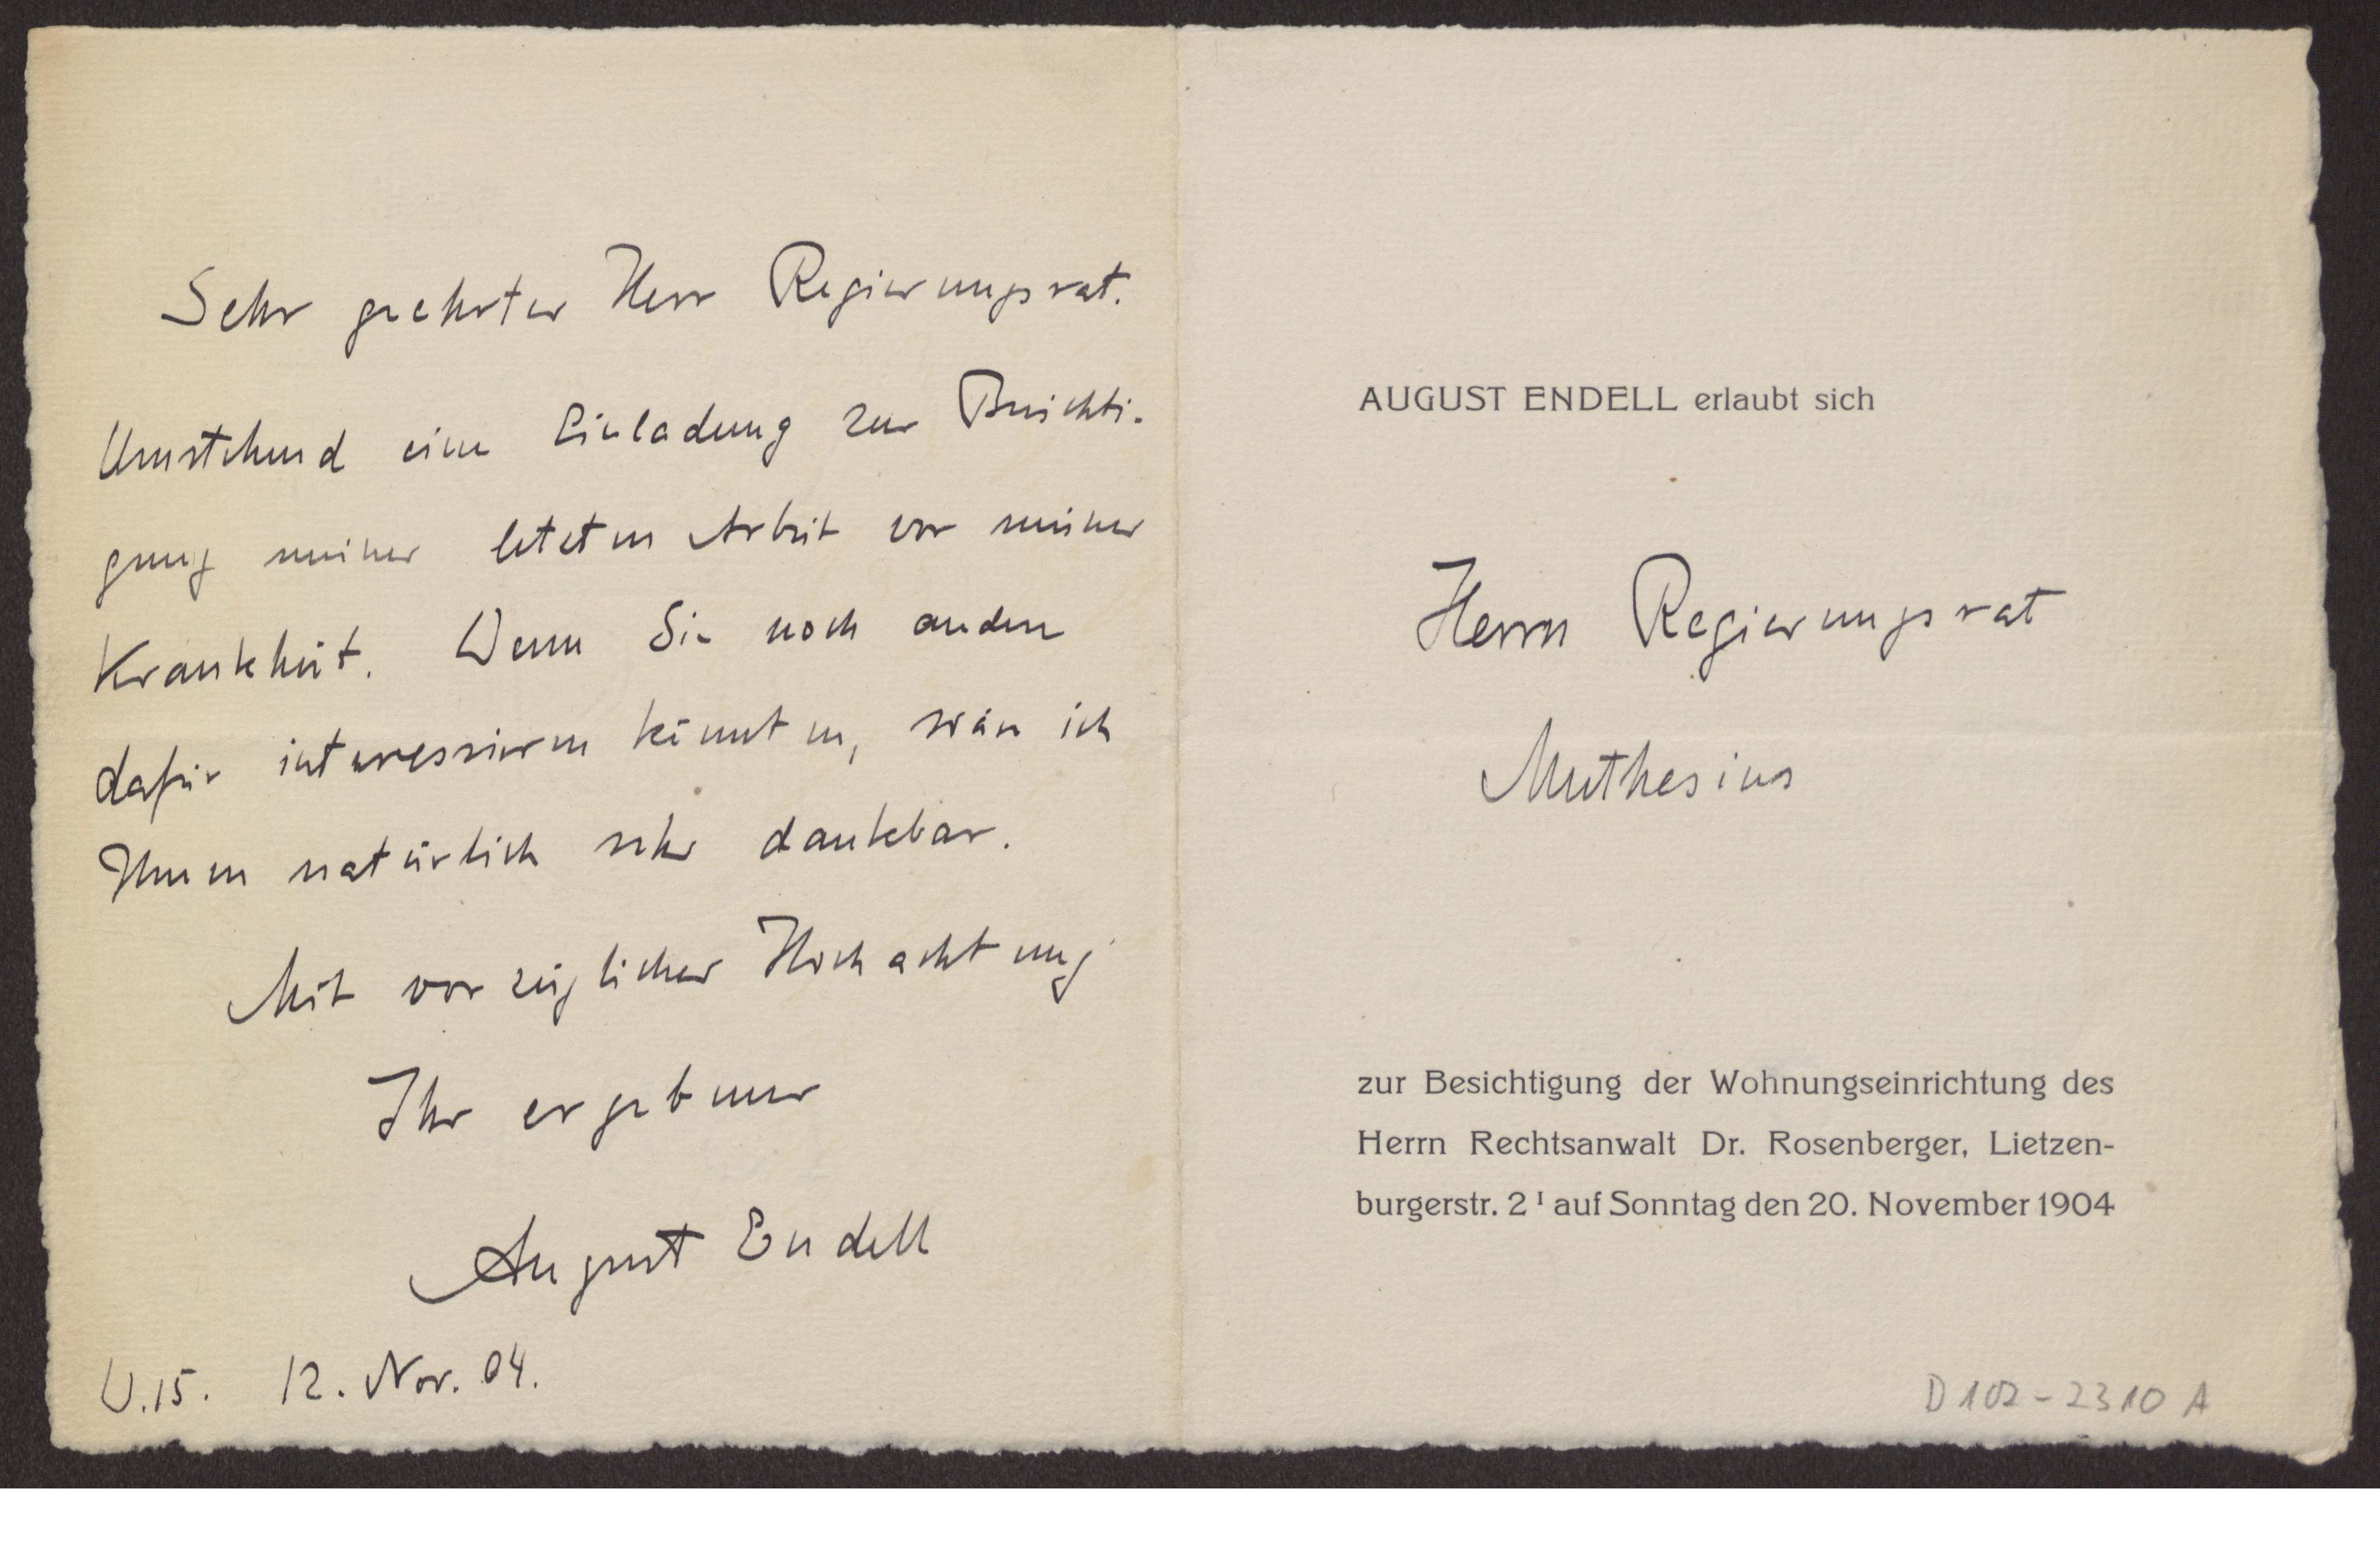 Sehr geehrter Herr Regierungsrat.
Umstehend eine Einladung zur Besichti-
gung meiner letzten Arbeit vor meiner
Krankheit. Wenn Sie noch andere
dafür interessieren könnten, wäre ich
Ihnen natürlich sehr dankbar.
Mit vorzüglicher Hochachtung
Ihr ergebener
August Endell
U.15. 12. Nov. 04.
AUGUST ENDELL erlaubt sich
Herrn Regierungsrat
Muthesius
zur Besichtigung der Wohnungseinrichtung des
Herrn Rechtsanwalt Dr. Rosenberger, Lietzen-
burgerstr. 2 I auf Sonntag den 20. November 1904
D 102-2310 A